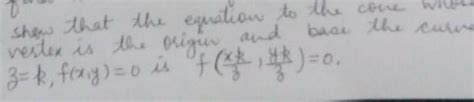 show that the equation to the cone whose
vertex is the origin and base the curve
z=k, f(x,y)=0 is f(xk/z, yk/z)=0.